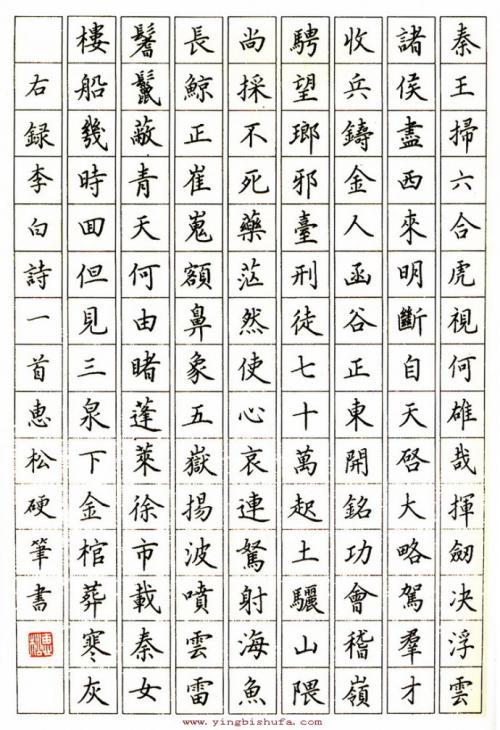 秦王掃六合虎視何雄哉揮劒决浮雲
諸侯盡西來明斷自天啓大略駕羣才
收兵鑄金人函谷正東開銘功會稽嶺
騁望瑯邪臺刑徒七十萬起土驪山隈
尚採不死藥茫然使心哀連駑射海魚
長鯨正崔嵬額鼻象五嶽揚波噴雲雷
鬐鬣蔽青天何由睹蓬萊徐市載秦女
樓船幾時囬但見三泉下金棺葬寒灰
右録李白詩一首惠松硬筆書
www.yingbishufa.com